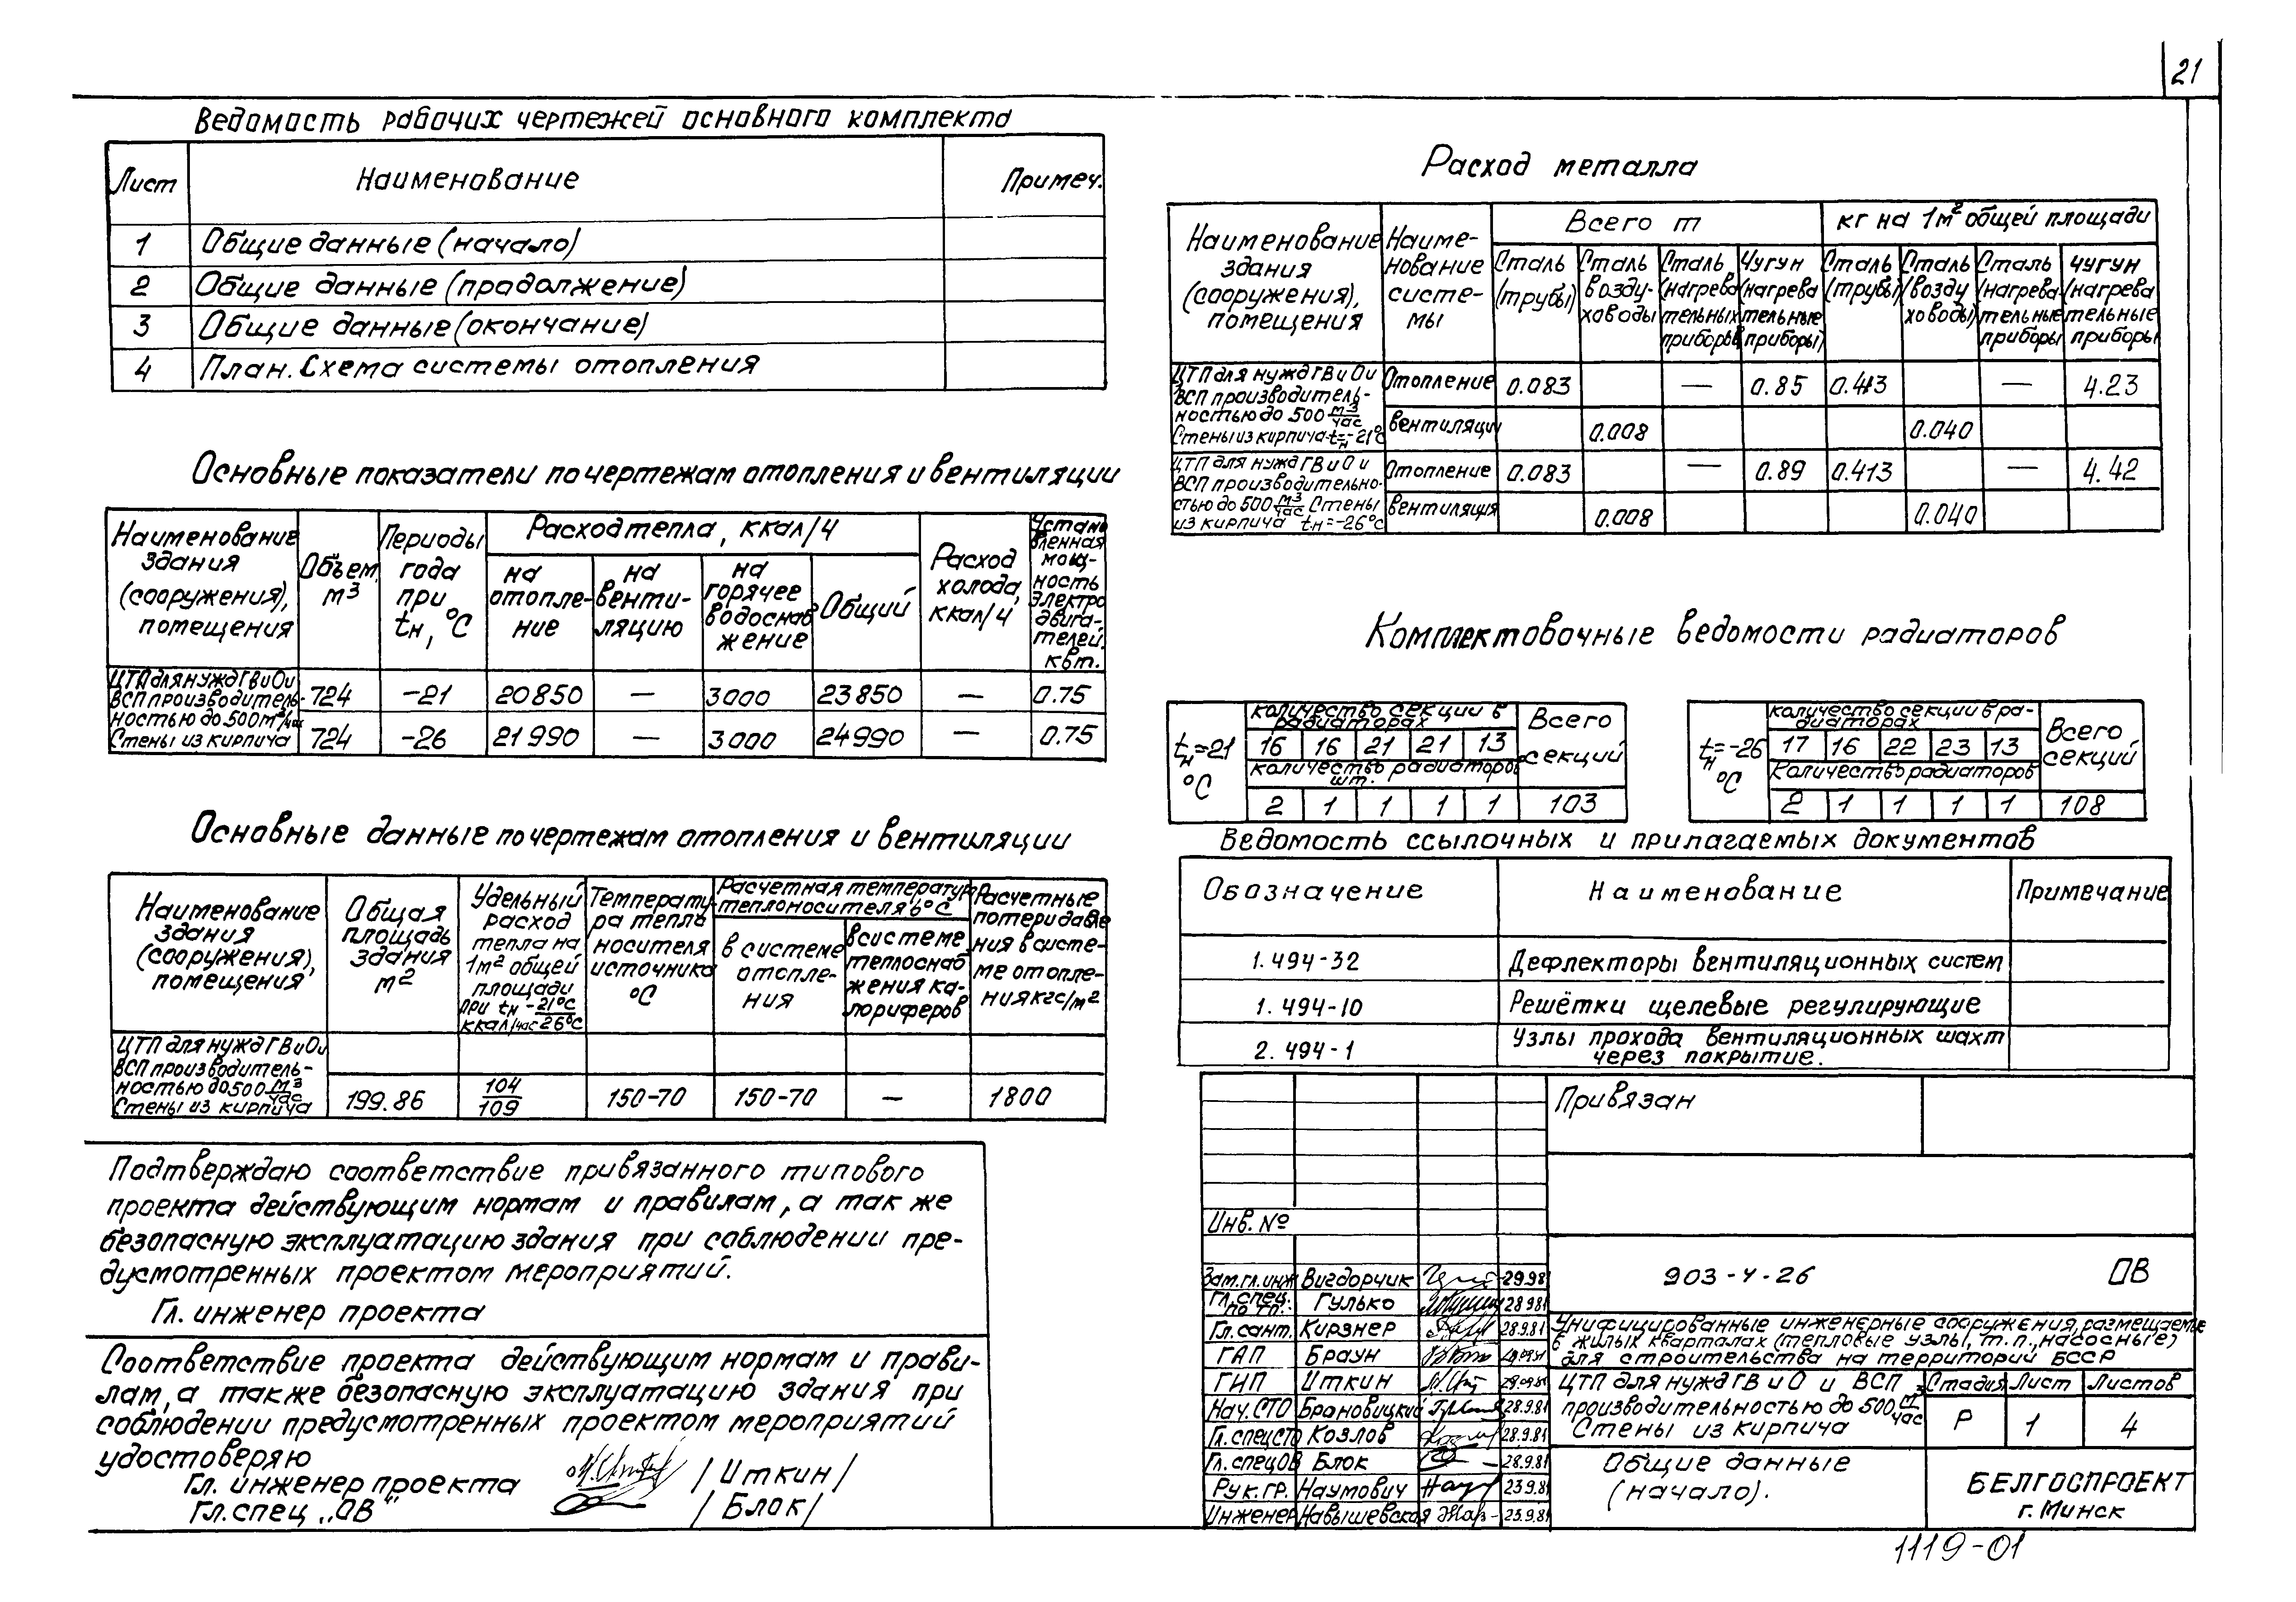 21
Ведомость рабочих чертежей основного комплекта
Лист Наименование Примеч.
1 Общие данные (начало)
2 Общие данные (продолжение)
3 Общие данные (окончание)
4 План. Схема системы отопления
Основные показатели по чертежам отопления и вентиляции
Наименование здания (сооружения), помещения
Объем м³
Периоды года при tн, °C
Расход тепла, ккал/ч
на отопление
на вентиляцию
на горячее водоснабжение
Общий
Расход холода, ккал/ч
Установленная мощность электродвигателей, квт.
ЦТП для нужд ГВ и О и
ВСП производитель-
ностью до 500 м³/час
Стены из кирпича
724 -21 20850 — 3000 23850 — 0.75
724 -26 21990 — 3000 24990 — 0.75
Основные данные по чертежам отопления и вентиляции
Наименование здания (сооружения), помещения
Общая площадь здания м²
Удельный расход тепла на 1м² общей площади при tн -21°C/26°C ккал/час
Температура теплоносителя источника °C
Расчетная температура теплоносителя в °C
в системе отопления
в системе теплоснабжения калориферов
Расчетные потери давления в системе отопления кгс/м²
ЦТП для нужд ГВ и О и
ВСП производитель-
ностью до 500 м³/час
Стены из кирпича
199.86 104/109 150-70 150-70 — 1800
Подтверждаю соответствие привязанного типового
проекта действующим нормам и правилам, а так же
безопасную эксплуатацию здания при соблюдении пре-
дусмотренных проектом мероприятий.
Гл. инженер проекта
Соответствие проекта действующим нормам и прави-
лам, а также безопасную эксплуатацию здания при
соблюдении предусмотренных проектом мероприятий
удостоверяю
Гл. инженер проекта /Иткин/
Гл. спец „ОВ“ /Блок/
Расход металла
Наименование здания (сооружения), помещения
Наименование системы
Всего т
кг на 1м² общей площади
Сталь (трубы)
Сталь воздуховоды
Сталь (нагревательных приборов)
Чугун (нагревательные приборы)
Сталь (трубы)
Сталь (воздуховоды)
Сталь (нагревательные приборы
чугун (нагревательные приборы
ЦТП для нужд ГВ и О и
ВСП производитель-
ностью до 500 м³/час
Стены из кирпича tн=-21°C
Отопление 0.083 — 0.85 0.413 — 4.23
вентиляции 0.008 0.040
ЦТП для нужд ГВ и О и
ВСП производительно-
стью до 500 м³/час Стены
из кирпича tн=-26°C
Отопление 0.083 — 0.89 0.413 — 4.42
вентиляция 0.008 0.040
Комплектовочные ведомости радиаторов
tн=-21 °C
количество секции в радиаторах
Всего секций
16 16 21 21 13
количество радиаторов шт.
2 1 1 1 1 103
tн=-26 °C
количество секции в радиаторах
Всего секций
17 16 22 23 13
Количество радиаторов
2 1 1 1 1 108
Ведомость ссылочных и прилагаемых документов
Обозначение Наименование Примечание
1.494-32 Дефлекторы вентиляционных систем
1.494-10 Решётки щелевые регулирующие
2.494-1 Узлы прохода вентиляционных шахт
через покрытие.
Привязан
Инв. №
903-4-26 ОВ
Зам.гл.инж Вигдорчик 29.9.81
Гл. спец. по тп. Гулько 28.9.81
Гл. сант. Кирзнер 28.9.81
ГАП Браун
ГИП Иткин
Нач. СТО Брановицкий 28.9.81
Гл. спец СТО Козлов 28.9.81
Гл. спец ОВ Блок 28.9.81
Рук. гр. Наумович 23.9.81
Инженер Навышевская 23.9.81
Унифицированные инженерные сооружения, размещаемые
в жилых кварталах (тепловые узлы, т.п., насосные)
для строительства на территорий БССР
ЦТП для нужд ГВ и О и ВСП
производительностью до 500 м³/час
Стены из кирпича
Стадия Лист Листов
Р 1 4
Общие данные
(начало).
БЕЛГОСПРОЕКТ
г. Минск
1119-01